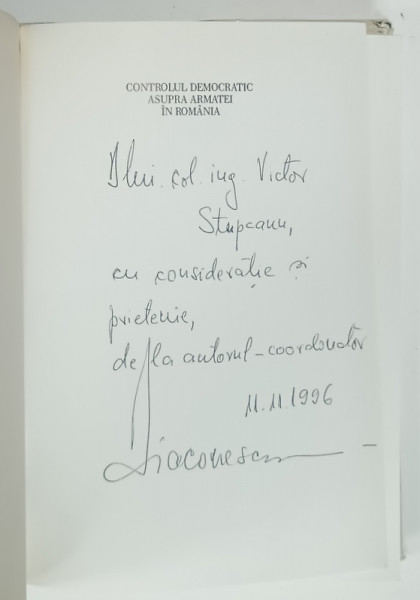 CONTROLUL DEMOCRATIC
ASUPRA ARMATEI
ÎN ROMÂNIA
Dlui. col. ing. Victor
Stupcanu,
cu considerație și
prietenie,
de la autorul-coordonator
11.11.1996
Diaconescu